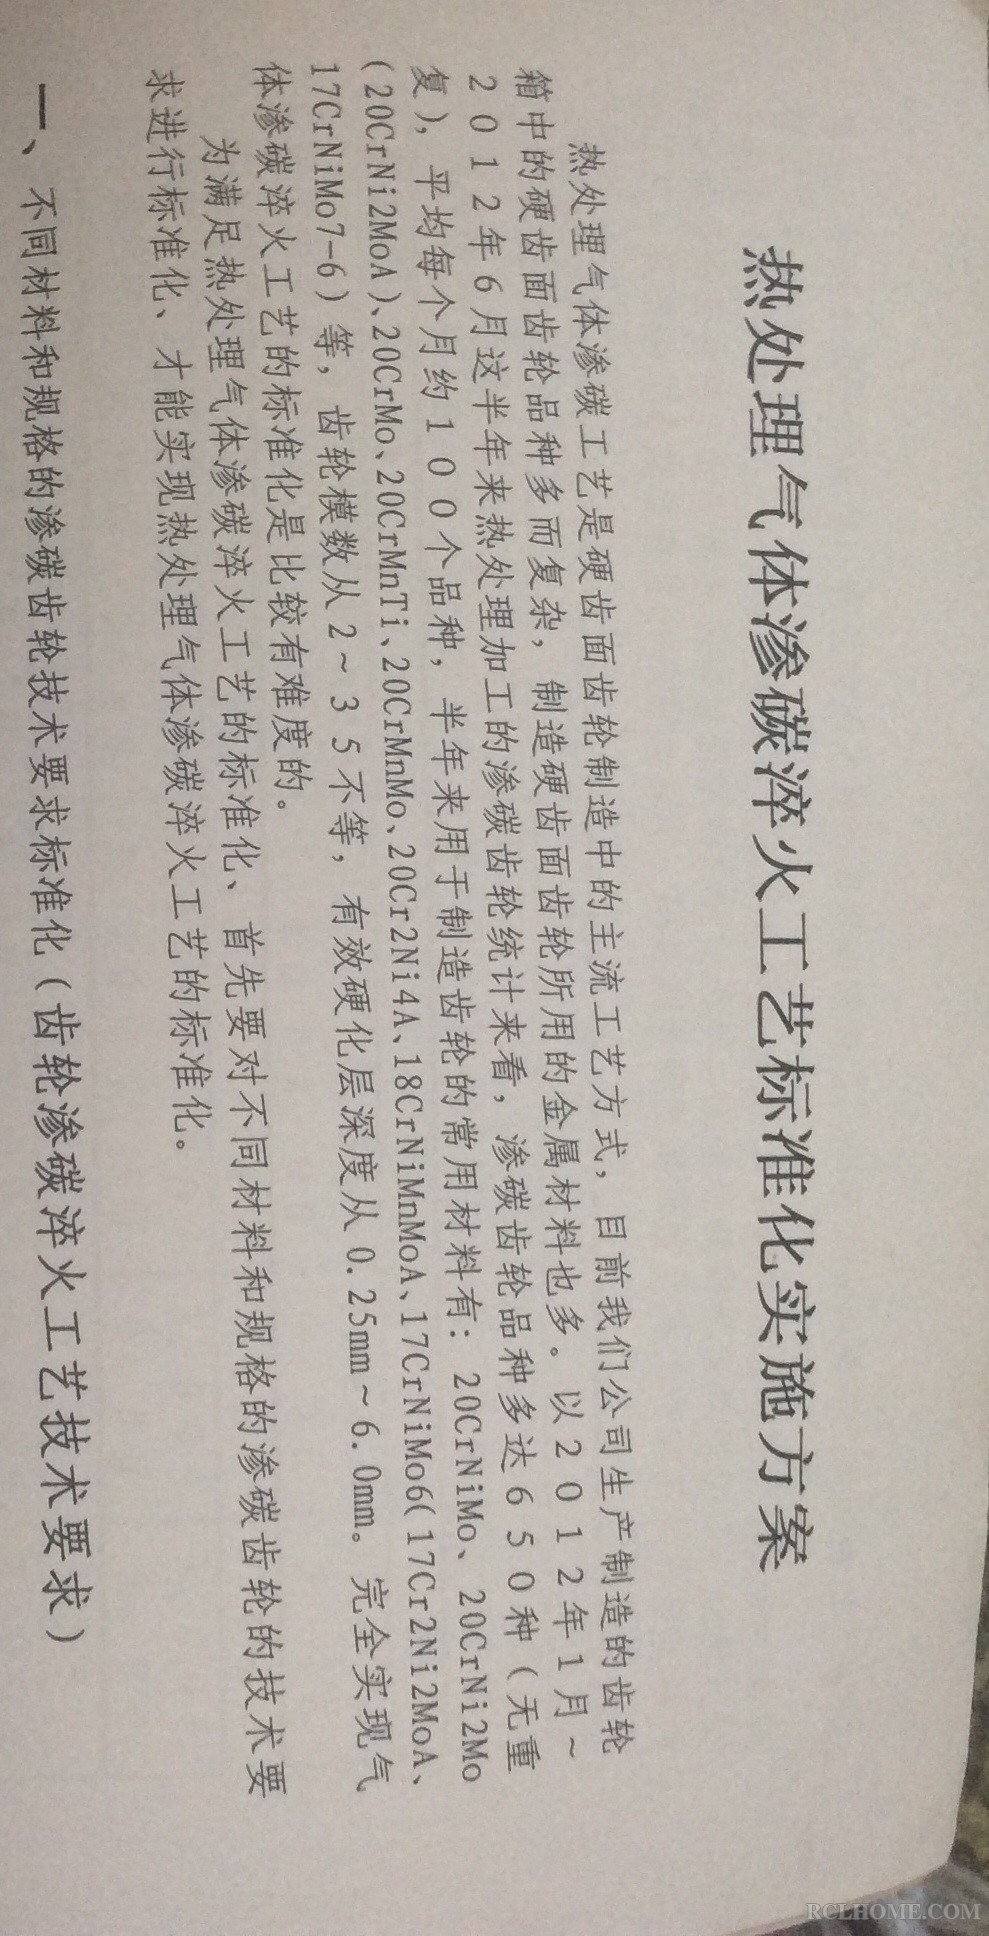 热处理气体渗碳淬火工艺标准化实施方案
热处理气体渗碳工艺是硬齿面齿轮制造中的主流工艺方式，目前我们公司生产制造的齿轮
箱中的硬齿面齿轮品种多而复杂，制造硬齿面齿轮所用的金属材料也多。以２０１２年１月～
２０１２年６月这半年来热处理加工的渗碳齿轮统计来看，渗碳齿轮品种多达６５０种（无重
复），平均每个月约１００个品种，半年来用于制造齿轮的常用材料有：20CrNiMo、20CrNi2Mo
(20CrNi2MoA)、20CrMo、20CrMnTi、20CrMnMo、20Cr2Ni4A、18CrNiMnMoA、17CrNiMo6(17Cr2Ni2MoA、
17CrNiMo7-6)等，齿轮模数从２～３５不等，有效硬化层深度从0.25mm～6.0mm。完全实现气
体渗碳淬火工艺的标准化是比较有难度的。
为满足热处理气体渗碳淬火工艺的标准化、首先要对不同材料和规格的渗碳齿轮的技术要
求进行标准化、才能实现热处理气体渗碳淬火工艺的标准化。
一、不同材料和规格的渗碳齿轮技术要求标准化（齿轮渗碳淬火工艺技术要求）
RCLHOME.COM